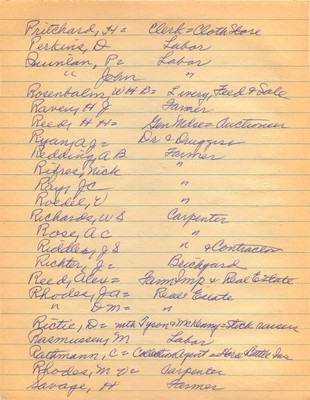 Pritchard, H = Clerk = Cloth Store
Perkins, D Labor
Quinlan, P = Labor
" John "
Rosenbalm, W H B = Livery, Feed & Sale
Ravey, H J Farmer
Reed, H H = Gen Mdse = Auctioneer
Ryan, A J = Dr & Druggist
Redding, A B Farmer
Rifres, Nick "
Ray, J C "
Roedel, V "
Richards, W S Carpenter
Rose, A C "
Riddles, J S " & Contractor
Richter, J = Brickyard
Reed, Alex = Farm Imp & Real Estate
Rhodes, J A = Real Estate
" D M = "
Rictie, D = with Tyson = McHenny = Stock raiser
Rasmussen, M Labor
Rathmann, C = Collection Agent = Horse Cattle Ins
Rhodes, M V = Carpenter
Savage, H Farmer